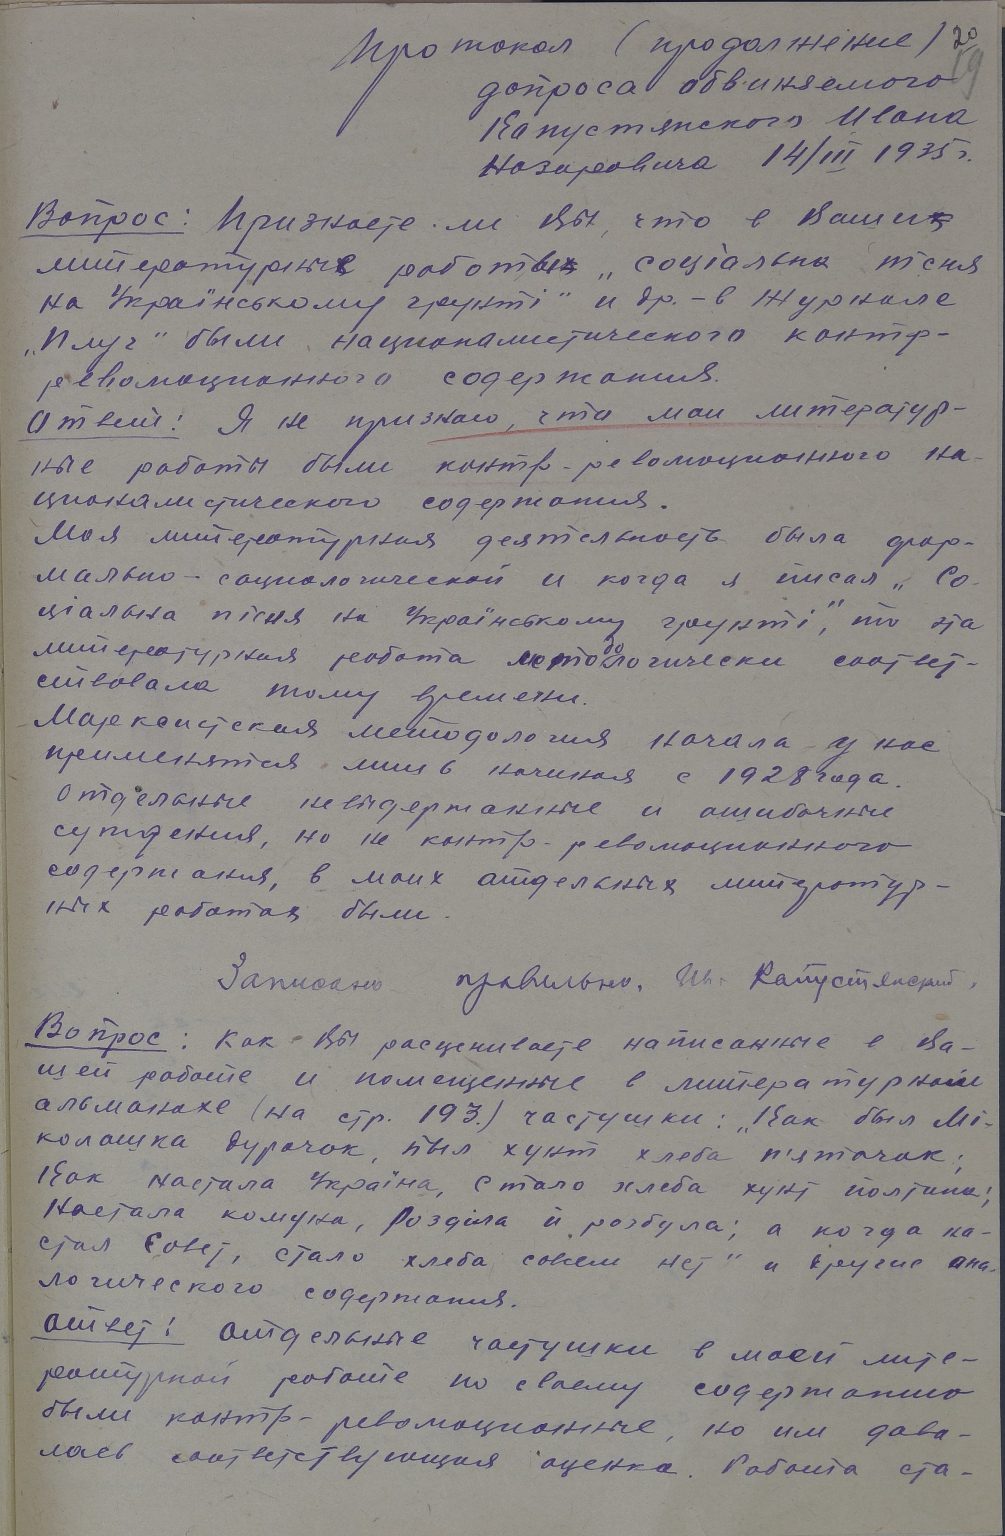 Протокол (продолжение) 20
19
допроса обвиняемого
Капустянского Ивана
Назаровича 14/III 1935 г.
Вопрос: Признаете ли Вы, что в Ваших
литературных работах „Соціальна пісня
на Українському ґрунті" и др. – в журнале
„Плуг" были националистического контр-
революционного содержания.
Ответ: Я не признаю, что мои литератур-
ные работы были контр-революционного на-
ционалистического содержания.
Моя литературная деятельность была фор-
мально-социологической и когда я писал „Со-
ціальна пісня на Українському ґрунті", то эта
литературная работа методологически соответ-
ствовала тому времени.
Марксистская методология начала у нас
применятся лишь начиная с 1928 года.
Отдельные невыдержанные и ошибочные
суждения, но не контр-революционного
содержания, в моих отдельных литератур-
ных работах были.
Записано правильно. Ив. Капустянский.
Вопрос: Как Вы расцениваете написанные в Ва-
шей работе и помещенные в литературном
альманахе (на стр. 193.) частушки: „Как был Мі-
колашка дурачок, был хунт хлеба п'ятачок;
Как настала Україна, Стало хлеба хунт полтина;
Настала комуна, Розділа й розбула; а когда на-
стал Совет, стало хлеба совсем нет" и другие ана-
логического содержания.
Ответ: Отдельные частушки в моей лите-
ратурной работе по своему содержанию
были контр-революционные, но им дава-
лась соответствующая оценка. Работа ста-